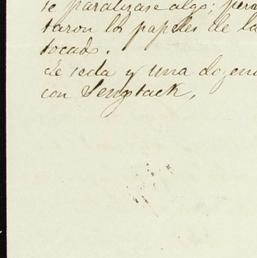 se paralizase algo; pera
taron los papeles de la
tocado.
de seda y una dozena
con Sengstack,